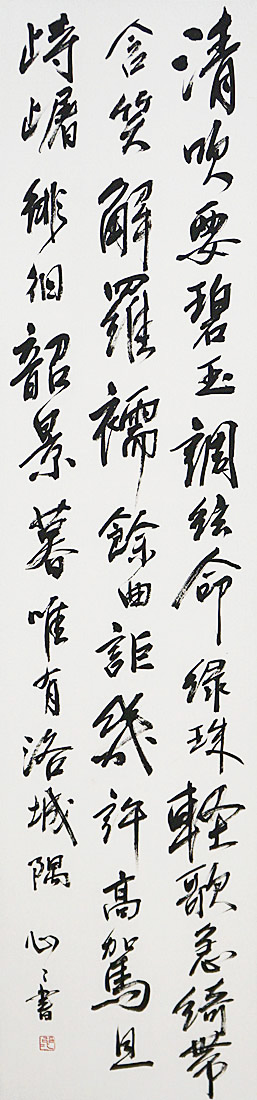 清吹要碧玉調絃命緑珠軽歌急綺帯
含笑解羅襦餘曲詎幾許高駕且
峙𡾊徘徊韶景暮唯有洛城隅 心々書